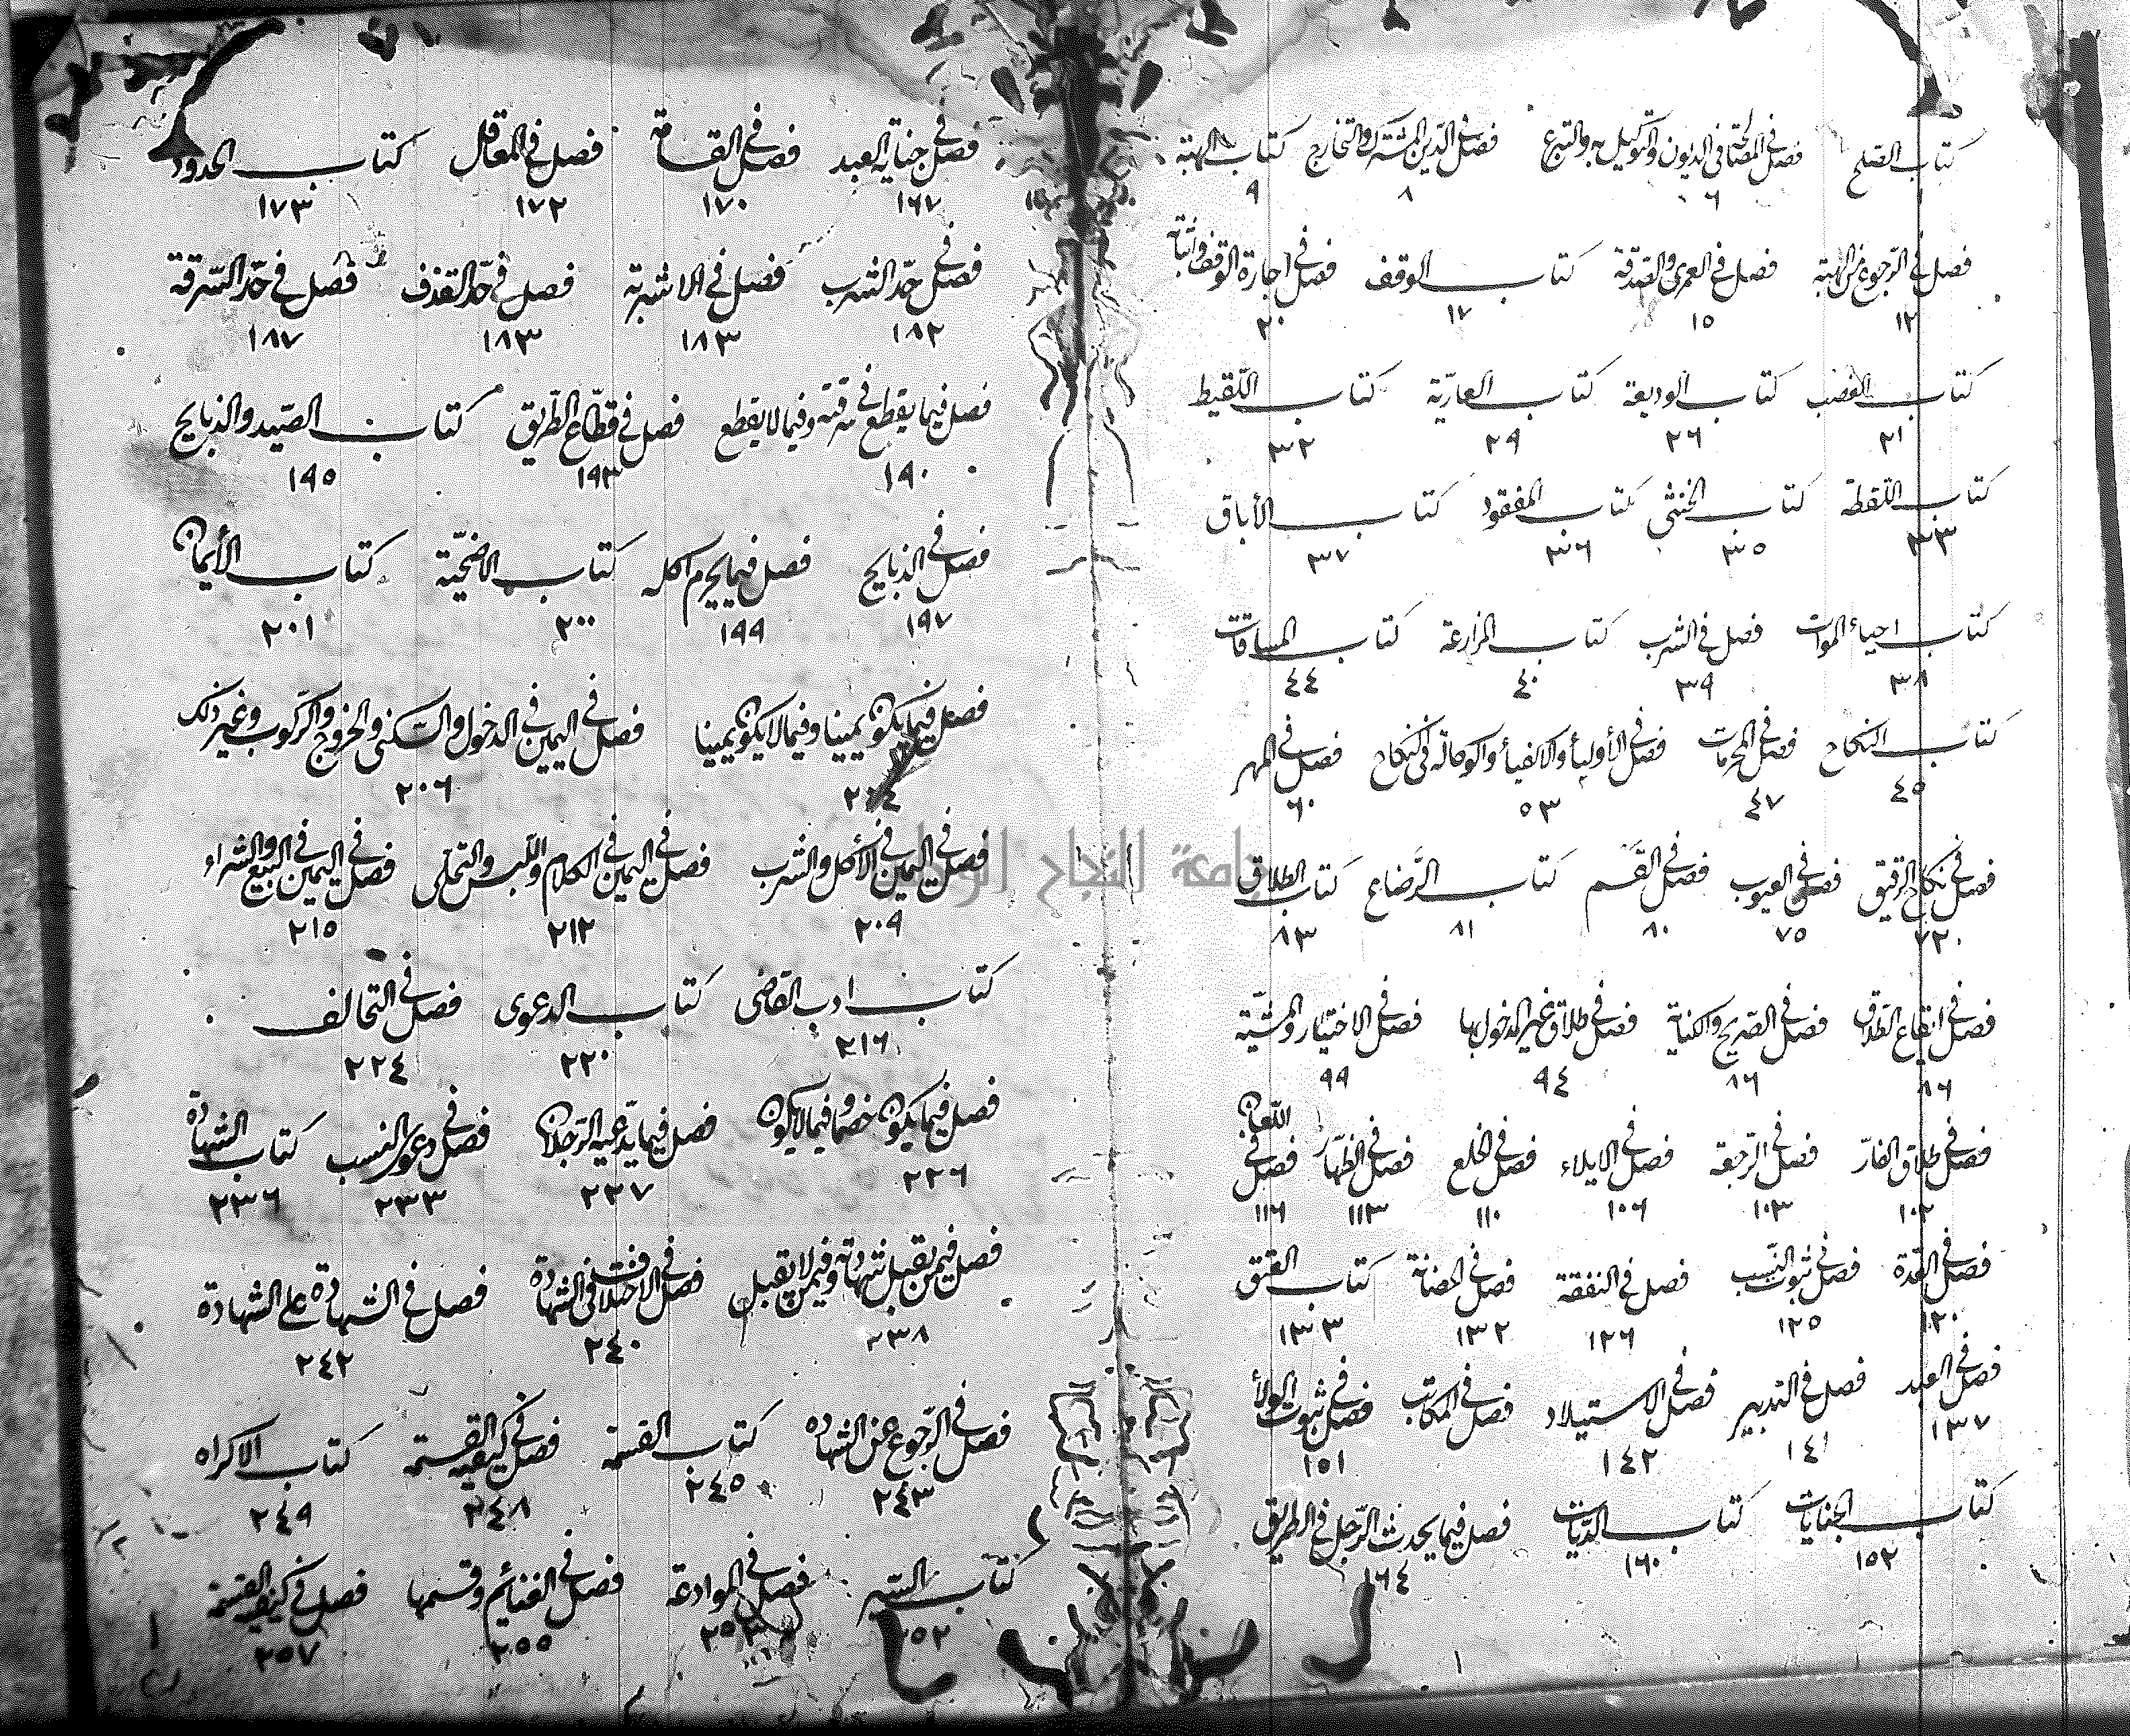 كتاب الصلح فصل في المصالحة في الديون والتوكيل به والتبرع فصل في الدين المشترك والتخارج كتاب الهبة
١ ٦ ٨ ٩
فصل في الرجوع عن الهبة فصل في العمرى والصدقة كتاب الوقف فصل في اجارة الوقف واثباته
١٢ ١٥ ١٧ ٢٠
كتاب الغصب كتاب الوديعة كتاب العارية كتاب اللقيط
٢١ ٢٦ ٢٩ ٣٢
كتاب اللقطة كتاب الخنثى كتاب المفقود كتاب الأباق
٣٣ ٣٥ ٣٦ ٣٧
كتاب احياء الموات فصل في الشرب كتاب المزارعة كتاب المساقات
٣٨ ٣٩ ٤٠ ٤٤
كتاب النكاح فصل في المحرمات فصل في الأولياء والاكفياء والوكالة في النكاح فصل في المهر
٤٥ ٤٧ ٥٣ ٦٠
فصل في نكاح الرقيق فصل في العيوب فصل في القسم كتاب الرضاع كتاب الطلاق
٧٢ ٧٥ ٨٠ ٨١ ٨٣
فصل في ايقاع الطلاق فصل في الصريح والكناية فصل في طلاق غير المدخول بها فصل في الاختيار والمشية
٨٦ ٨٦ ٩٤ ٩٩
فصل في طلاق الفار فصل في الرجعة فصل في الايلاء فصل في الخلع فصل في الظهار فصل في اللعان
١٠٢ ١٠٣ ١٠٦ ١١٠ ١١٣ ١١٦
فصل في العدة فصل في ثبوت النسب فصل في النفقة فصل في الحضانة كتاب العتق
١٢٠ ١٢٥ ١٢٦ ١٣٢ ١٣٣
فصل في العبد فصل في التدبير فصل في الاستيلاد فصل في المكاتب فصل في ثبوت الولأ
١٣٧ ١٤١ ١٤٢ ١٥١
كتاب الجنايات كتاب الديات فصل فيما يحدث الرجل في الطريق
١٥٢ ١٦٠ ١٦٤
فصل في جناية العبد فصل في القسامة فصل في المعاقل كتاب الحدود
١٦٧ ١٧٠ ١٧٢ ١٧٣
فصل في حد الشرب فصل في الاشربة فصل في حد القذف فصل في حد السرقة
١٨٢ ١٨٣ ١٨٣ ١٨٧
فصل فيما يقطع في سرقته وفيما لا يقطع فصل في قطاع الطريق كتاب الصيد والذبايح
١٩٠ ١٩٣ ١٩٥
فصل في الذبايح فصل فيما يحرم اكله كتاب الاضحية كتاب الأيمان
١٩٧ ١٩٩ ٢٠٠ ٢٠١
فصل فيما يكون يمينا وفيما لا يكون يمينا فصل في اليمين في الدخول والسكنى والخروج والركوب وغير ذلك
٢٠٤ ٢٠٦
فصل في اليمين في الأكل والشرب فصل في اليمين في الكلام واللبس والتحلى فصل في اليمين في البيع والشراء
٢٠٩ ٢١٢ ٢١٥
كتاب ادب القاضى كتاب الدعوى فصل في التحالف
٢١٦ ٢٢٠ ٢٢٤
فصل فيما يكون خصما وفيما لا يكون فصل فيما يدعيه الرجلان فصل في دعوى النسب كتاب الشهادة
٢٢٦ ٢٢٧ ٢٣٣ ٢٣٦
فصل فيمن تقبل شهادته وفيمن لا تقبل فصل في الاختلاف في الشهادة فصل في الشهادة على الشهادة
٢٣٨ ٢٤٠ ٢٤٢
فصل في الرجوع عن الشهادة كتاب القسمة فصل في كيفية القسمة كتاب الاكراه
٢٤٣ ٢٤٥ ٢٤٨ ٢٤٩
كتاب السير فصل في الموادعة فصل في الغنائم وقسمها فصل في كيفية القسمة
٢٥٢ ٢٥٣ ٢٥٥ ٢٥٧
جامعة النجاح